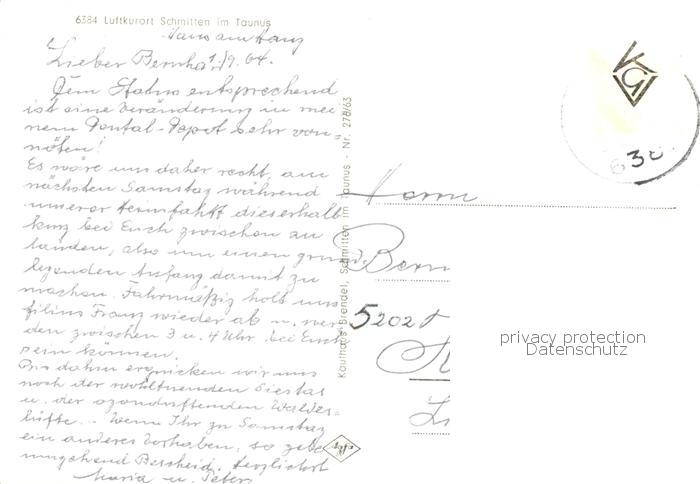 6384 Luftkurort Schmitten im Taunus
Haus am Hang
Lieber Bernha 1./9. 64.
Dem Status entsprechend
ist eine Veränderung in mei
nem Dental-Depot sehr von-
nöten!
Es wäre uns daher recht, am
nächsten Samstag während
unserer Heimfahrt dieserhalb
kurz bei Euch zwischen zu
landen, also um einen grund-
legenden Anfang damit zu
machen. Fahrmäßig holt uns
filius Franz wieder ab u. wer
den zwischen 3 u. 4 Uhr bei Euch
sein können.
Bis dahin erquicken wir uns
noch der wohltuenden Siestas
u. der ozonduftenden Waldes-
lüfte. - Wenn Ihr zu Samstag
ein anderes Vorhaben, so gebt
umgehend Bescheid. Herzlichst
Maria u. Peter
Kaufhaus Brendel, Schmitten im Taunus - Nr. 278/63
Agfa
KGV
638
Herrn
Bern
5202
privacy protection
Datenschutz